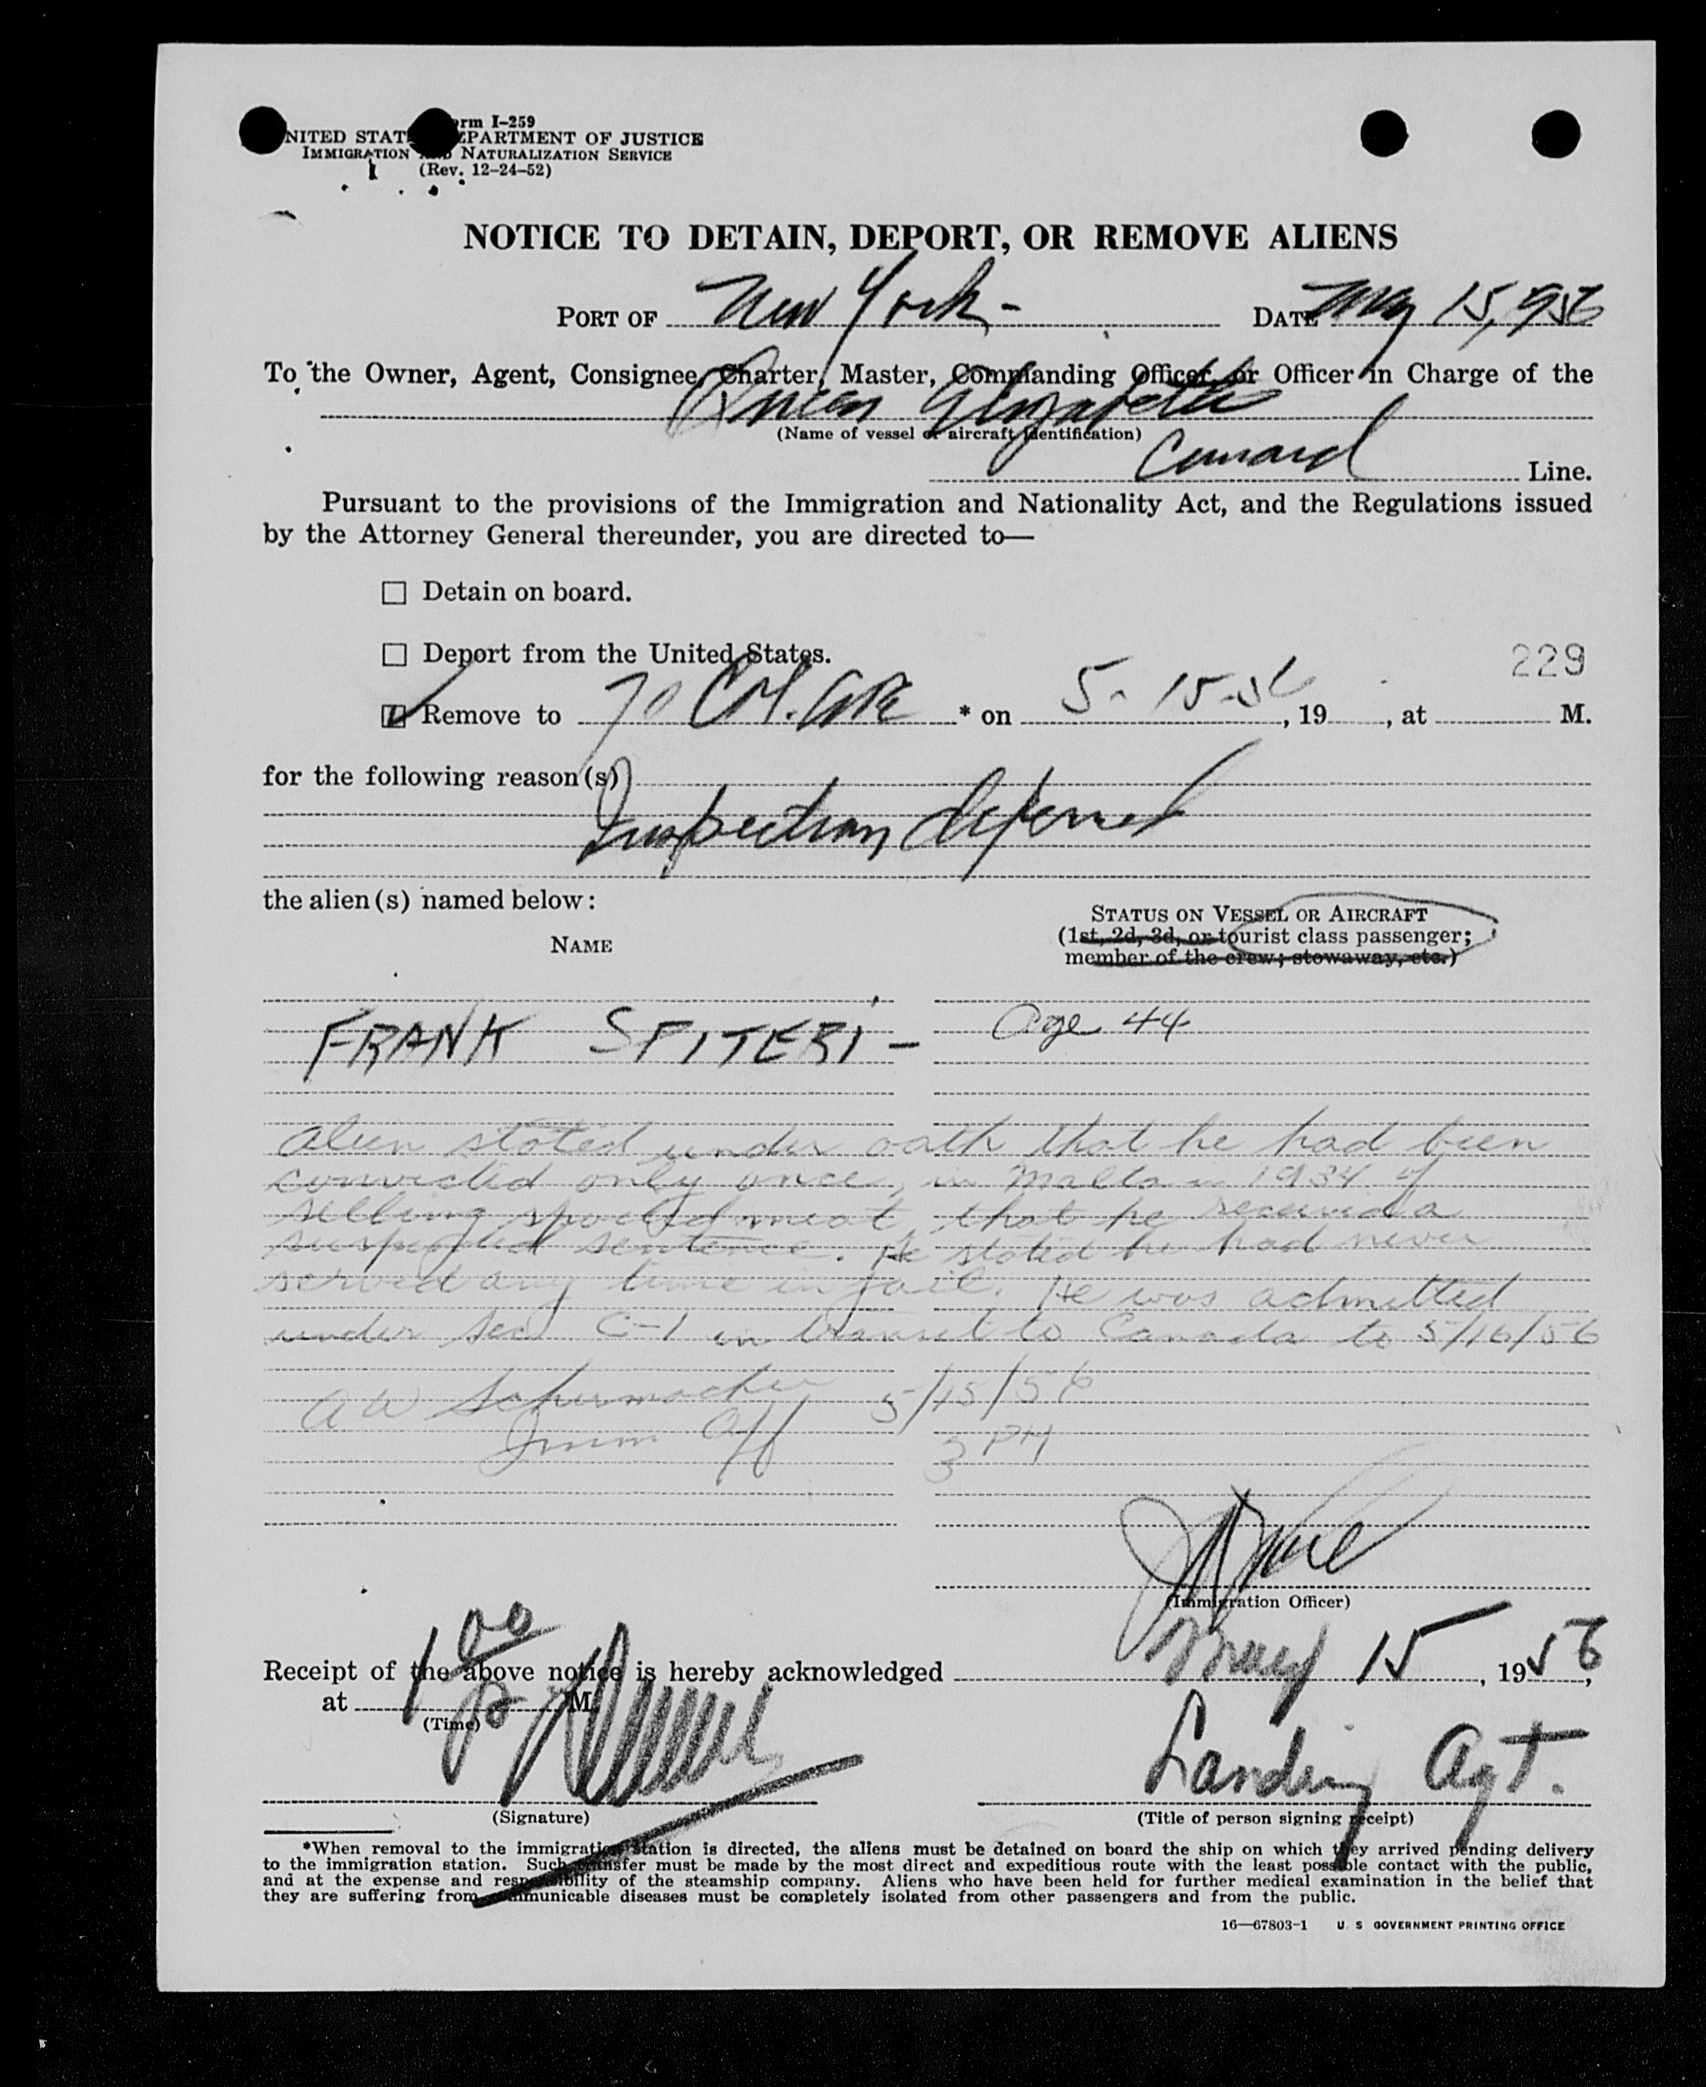 Form I-259
UNITED STATES DEPARTMENT OF JUSTICE
IMMIGRATION AND NATURALIZATION SERVICE
(Rev. 12-24-52)
NOTICE TO DETAIN, DEPORT, OR REMOVE ALIENS
PORT OF New York - DATE May 15, 1956
To the Owner, Agent, Consignee, Charter, Master, Commanding Officer, or Officer in Charge of the
Queen Elizabeth
(Name of vessel or aircraft identification)
Cunard Line.
Pursuant to the provisions of the Immigration and Nationality Act, and the Regulations issued
by the Attorney General thereunder, you are directed to—
☐ Detain on board.
☐ Deport from the United States.
229
☑ Remove to 70 Col. Ave * on 5-15-56, 19 , at M.
for the following reason(s)
Inspection deferred
the alien(s) named below:
STATUS ON VESSEL OR AIRCRAFT
(1st, 2d, 3d, or tourist class passenger;
NAME
member of the crew; stowaway, etc.)
FRANK SPITERI - Age 44
Alien stated under oath that he had been
convicted only once, in Malta in 1934 of
selling spoiled meat, that he received a
suspended sentence. He stated he had never
served any time in jail. He was admitted
under sec C-1 in transit to Canada to 5/16/56
A W Schermacher 5/15/56
Imm Off 3 PM
(Immigration Officer)
Receipt of the above notice is hereby acknowledged May 15, 1956,
at 1 00 P M.
(Time)
Landing Agt.
(Signature) (Title of person signing receipt)
*When removal to the immigration station is directed, the aliens must be detained on board the ship on which they arrived pending delivery
to the immigration station. Such transfer must be made by the most direct and expeditious route with the least possible contact with the public,
and at the expense and responsibility of the steamship company. Aliens who have been held for further medical examination in the belief that
they are suffering from communicable diseases must be completely isolated from other passengers and from the public.
16—67803-1 U. S GOVERNMENT PRINTING OFFICE